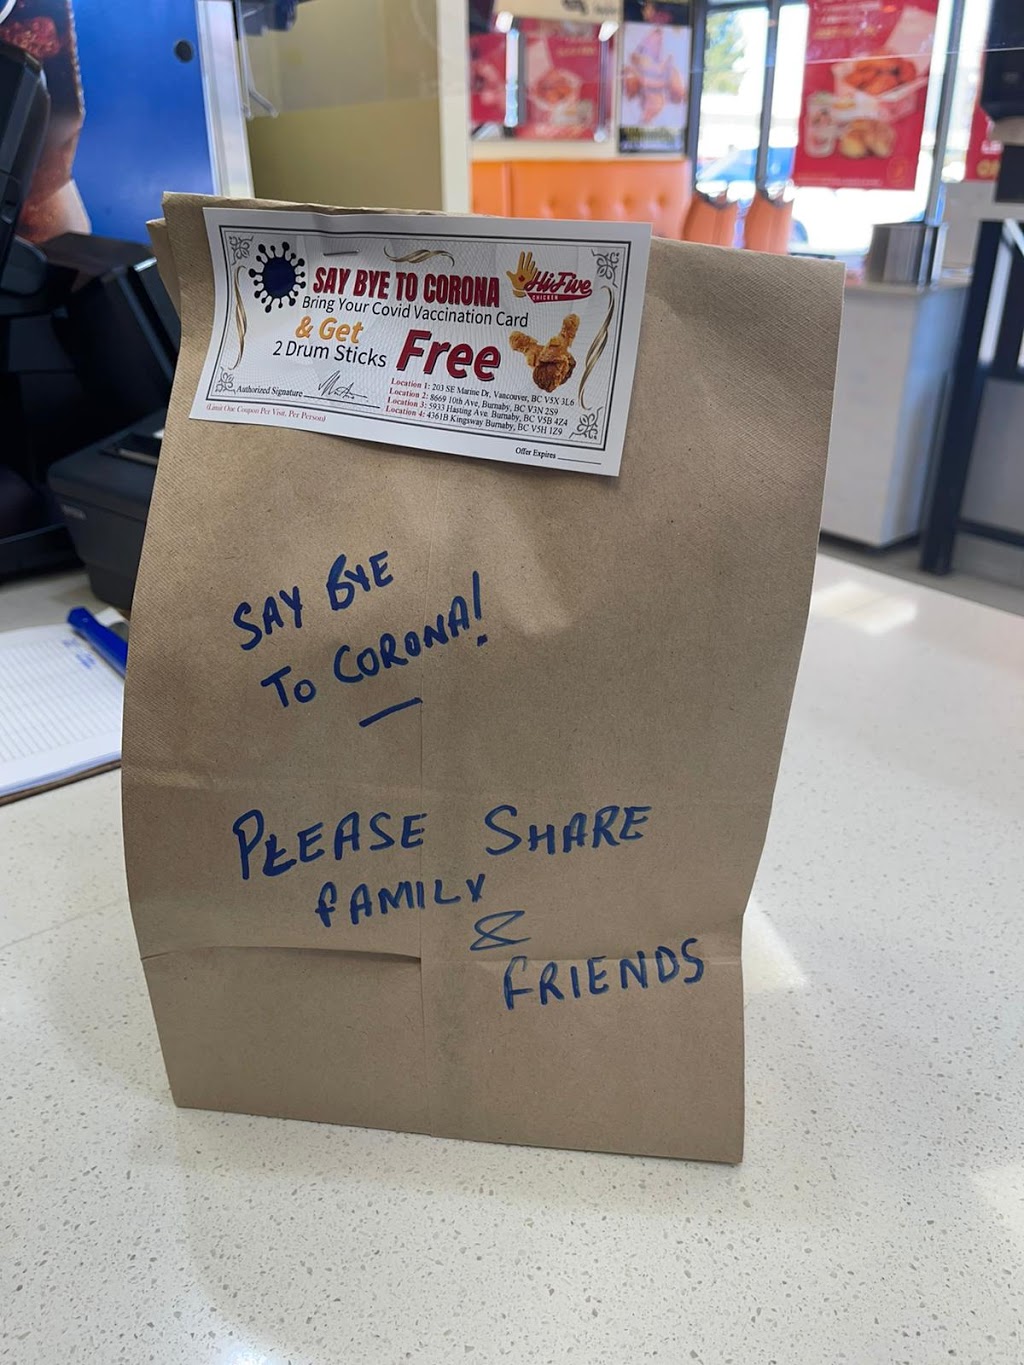 SAY BYE TO CORONA
HiFive
CHICKEN
Bring Your Covid Vaccination Card
& Get
2 Drum Sticks Free
Authorized Signature
(Limit One Coupon Per Visit, Per Person)
Location 1: 203 SE Marine Dr, Vancouver, BC V5X 3L6
Location 2: 8669 10th Ave, Burnaby, BC V3N 2S9
Location 3: 5933 Hasting Ave. Burnaby, BC V5B 4Z4
Location 4: 4361B Kingsway Burnaby, BC V5H 1Z9
Offer Expires
SAY BYE
TO CORONA!
PLEASE SHARE
FAMILY
&
FRIENDS